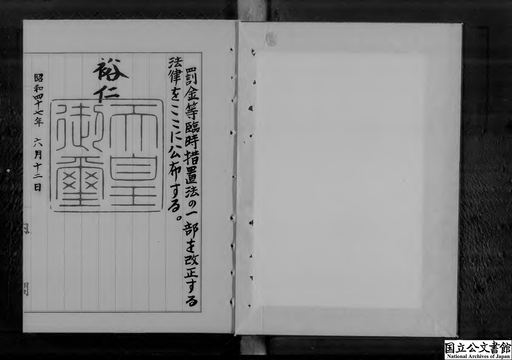 罰金等臨時措置法の一部を改正する
法律をここに公布する。
裕仁
天皇
御璽
昭和四十七年 六月十二日
国立公文書館
National Archives of Japan